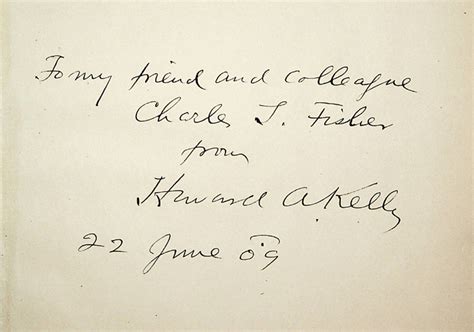 To my friend and colleague
Charles T. Fisher
from
Howard A. Kelly
22 June 09